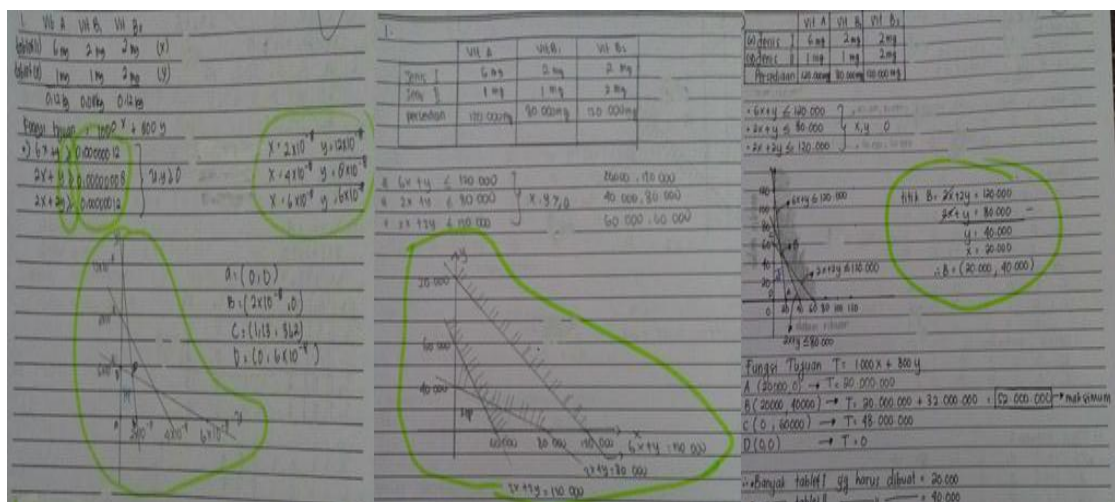 1. Vit A Vit B1 Vit B2
6 mg 2 mg 2 mg (x)
1 mg 1 mg 2 mg (y)
0.12 kg 0.08 kg 0.12 kg
Fungsi tujuan = 1000 x + 800 y
6x+y ≥ 0.00000012
2x+y ≥ 0.00000008
2x+2y ≥ 0.00000012
x,y ≥ 0
x = 2x10⁻⁸ y = 12x10⁻⁸
x = 4x10⁻⁸ y = 8x10⁻⁸
x = 6x10⁻⁸ y = 6x10⁻⁸
a = (0,0)
B = (2x10⁻⁸, 0)
D = (0, 6x10⁻⁸)
1.
Vit A Vit B1 Vit B2
Jenis I 6 mg 2 mg 2 mg
Jenis II 1 mg 1 mg 2 mg
persediaan 120 000 mg 80 000 mg 120 000 mg
6x +y ≤ 120 000
2x +y ≤ 80 000
2x +2y ≤ 120 000
40 000, 80 000
60 000, 60 000
y
60 000
40 000
Hp
60 000 80 000 120 000 x
2x+y = 80 000
2x +2y = 120 000
Vit A Vit B1 Vit B2
(x) Jenis I 6 mg 2 mg 2mg
(y) Jenis II 1 mg 1 mg 2mg
Persediaan 120.000mg 80.000mg 120.000 mg
• 6x+y ≤ 120.000
• 2x+y ≤ 80.000
• 2x+2y ≤ 120.000
x,y 0
titik B = 2x+2y = 120.000
2x+y = 80.000 -
y = 40.000
x = 20.000
∴ B = (20.000, 40.000)
6x+y ≤ 120.000
2x+2y ≤ 120.000
0 20 40 60 80 100 120
2x+y ≤ 80.000
Fungsi Tujuan T = 1000 x + 800 y
A (20000,0) → T = 20.000.000
B (20000, 40000) → T = 20.000.000 + 32.000.000 = 52.000.000 → maksimum
C (0, 60000) → T = 48.000.000
D (0,0) → T = 0
∴ Banyak tablet I yg harus dibuat = 20.000
tablet II = 40.000